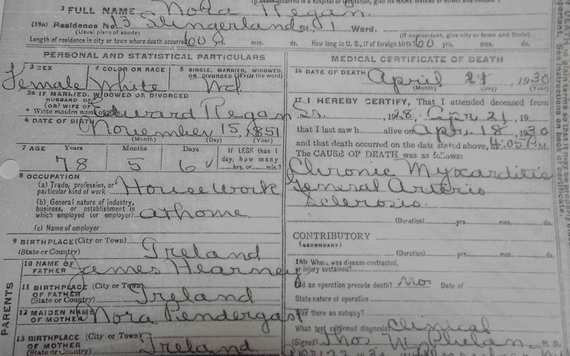 2 FULL NAME Nora Regan
(19a) Residence No. 13 Slingerland St Ward.
(Usual place of abode) (If nonresident, give city or town and State)
Length of residence in city or town where death occurred 60 yrs. mos. ds. How long in U.S., if of foreign birth? 60 yrs. mos. ds.
PERSONAL AND STATISTICAL PARTICULARS
3 SEX 4 COLOR OR RACE 5 SINGLE, MARRIED, WIDOWED OR DIVORCED (write the word)
Female White Wd
5a IF MARRIED, WIDOWED OR DIVORCED
HUSBAND OF
(OR) WIFE OF Edward Regan
6 DATE OF BIRTH
November 15, 1851
(Month) (Day) (Year)
7 AGE Years Months Days IF LESS than 1 day, how many hrs. or min.?
78 5 6
8 OCCUPATION
(a) Trade, profession, or particular kind of work Housework
(b) General nature of industry, business, or establishment in which employed (or employer) at home
(c) Name of employer
9 BIRTHPLACE (City or Town)
(State or Country) Ireland
10 NAME OF FATHER James Kearney
11 BIRTHPLACE OF FATHER (City or Town)
(State or Country) Ireland
12 MAIDEN NAME OF MOTHER Nora Pendergast
13 BIRTHPLACE OF MOTHER (City or Town) Ireland
PARENTS
MEDICAL CERTIFICATE OF DEATH
16 DATE OF DEATH April 21 1930
(Month) (Day) (Year)
17 I HEREBY CERTIFY, That I attended deceased from
1928, Apr 21, 19
that I last saw h alive on Apr 18, 1930
and that death occurred on the date stated above, 4:05 M.
The CAUSE OF DEATH was as follows:
Chronic Myocarditis
General Arterio
Sclerosis.
(Duration) yrs. mos. ds.
CONTRIBUTORY
(SECONDARY)
(Duration) yrs. mos. ds.
18 Where was disease contracted,
or injury sustained?
Did an operation precede death? no Date of
State nature of operation
Was there an autopsy?
What test confirmed diagnosis? Clinical
(Signed) Thos W. Phelan M.D.